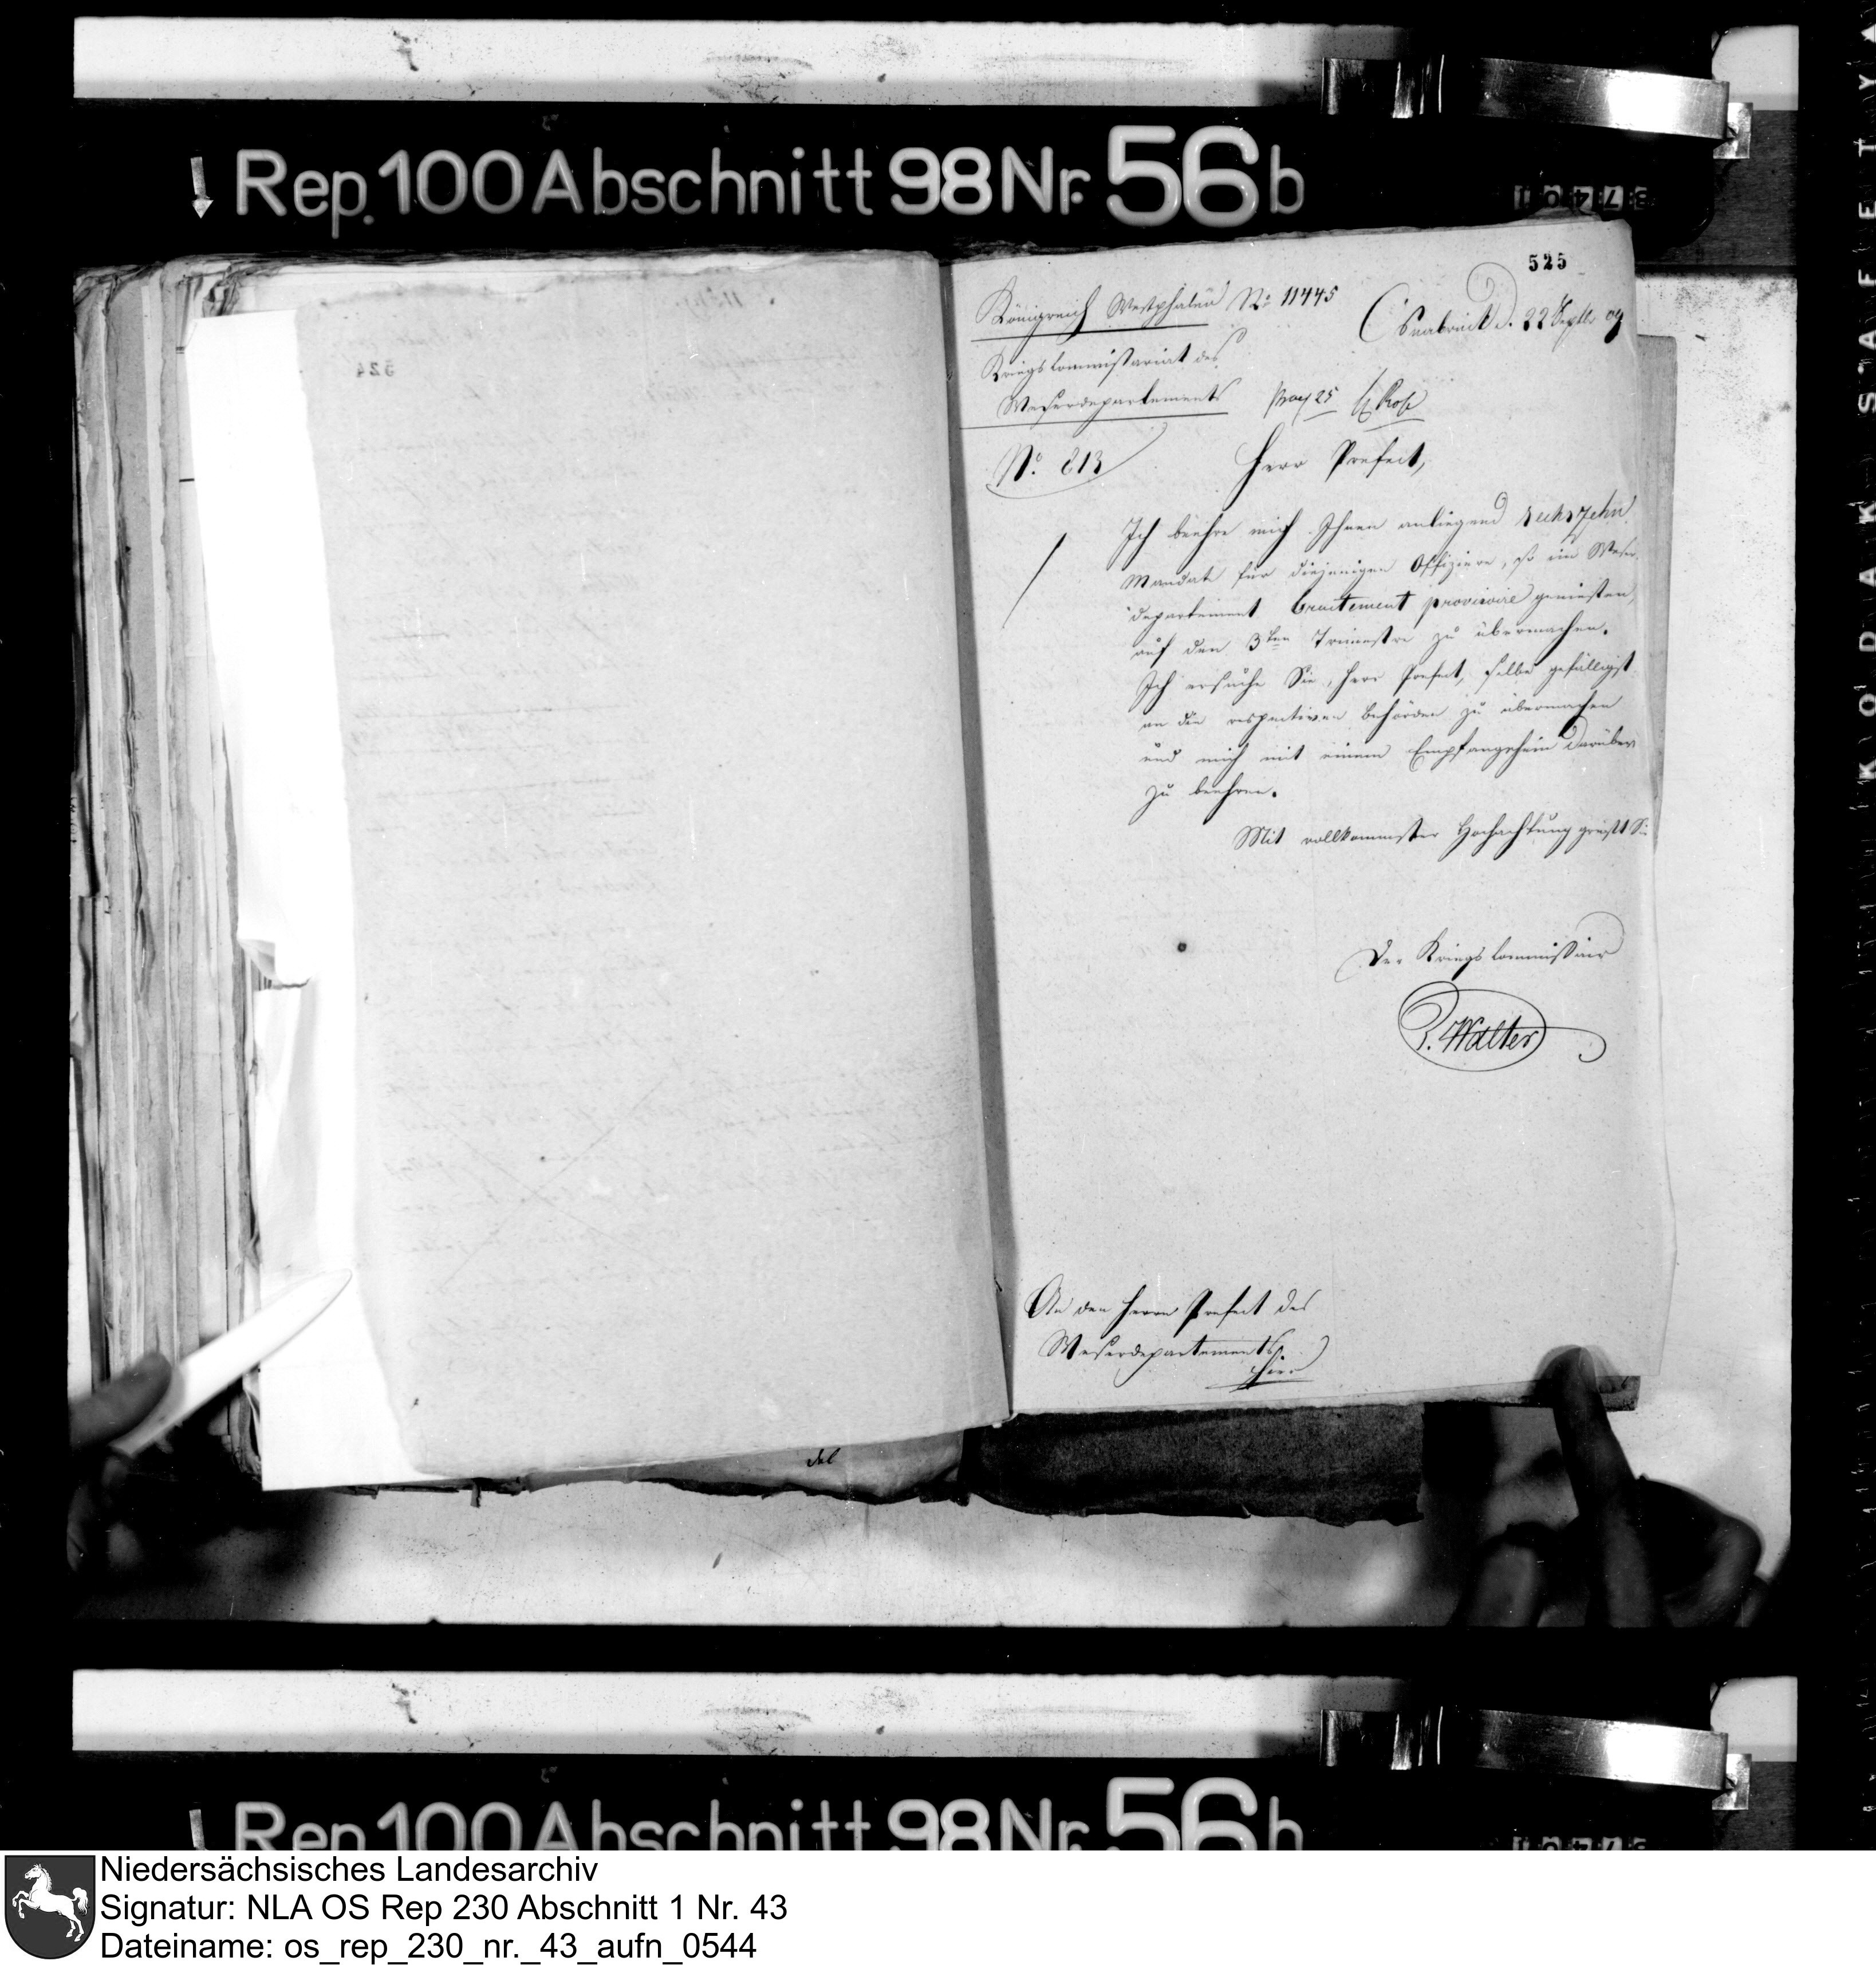 Rep. 100 Abschnitt 98 Nr. 56 b
37401
525
524
Königreich Westphalen No 11445
Osnabrück d. 22 Septbr 09
Kriegs Commissariat des
Weserdepartements
No. 813
Herr Prefect,
Ich beehre mich Ihnen anliegend sechszehn
Mandate für diejenigen Offiziere, so im Weser
departement traitement provisoire geniessen,
auf den 3ten Trimestre zu übermachen.
Ich ersuche Sie, Herr Prefect, selbe gefälligst
an die respectiven Behörden zu übermachen
und mich mit einem Empfangschein darüber
zu beehren.
Mit vollkommster Hochachtung grüsst Sie
Der Kriegs Commissair
Walter
An den Herrn Prefect des
Weserdepartements.
hier
KODAK SAFETY
Rep. 100 Abschnitt 98 Nr. 56 b
37401
Niedersächsisches Landesarchiv
Signatur: NLA OS Rep 230 Abschnitt 1 Nr. 43
Dateiname: os_rep_230_nr._43_aufn_0544